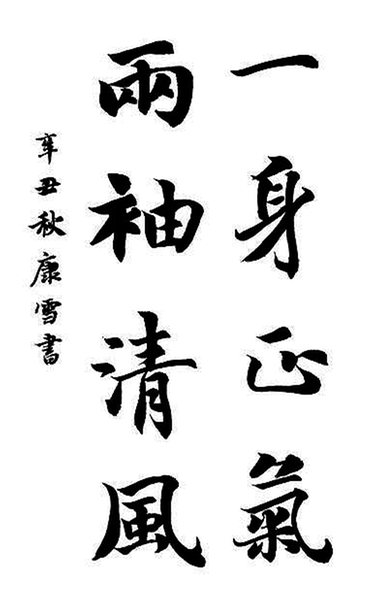 一身正氣
兩袖清風
辛丑秋康雪書